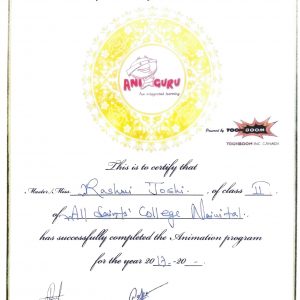 ANI GURU
Fun integrated learning
Powered by TOON BOOM
TOONBOOM INC. CANADA
This is to certify that
Master/Miss. Rashmi Joshi. of class II
of All Saints' College Nainital.
has successfully completed the Animation program
for the year 2013 -20 -.